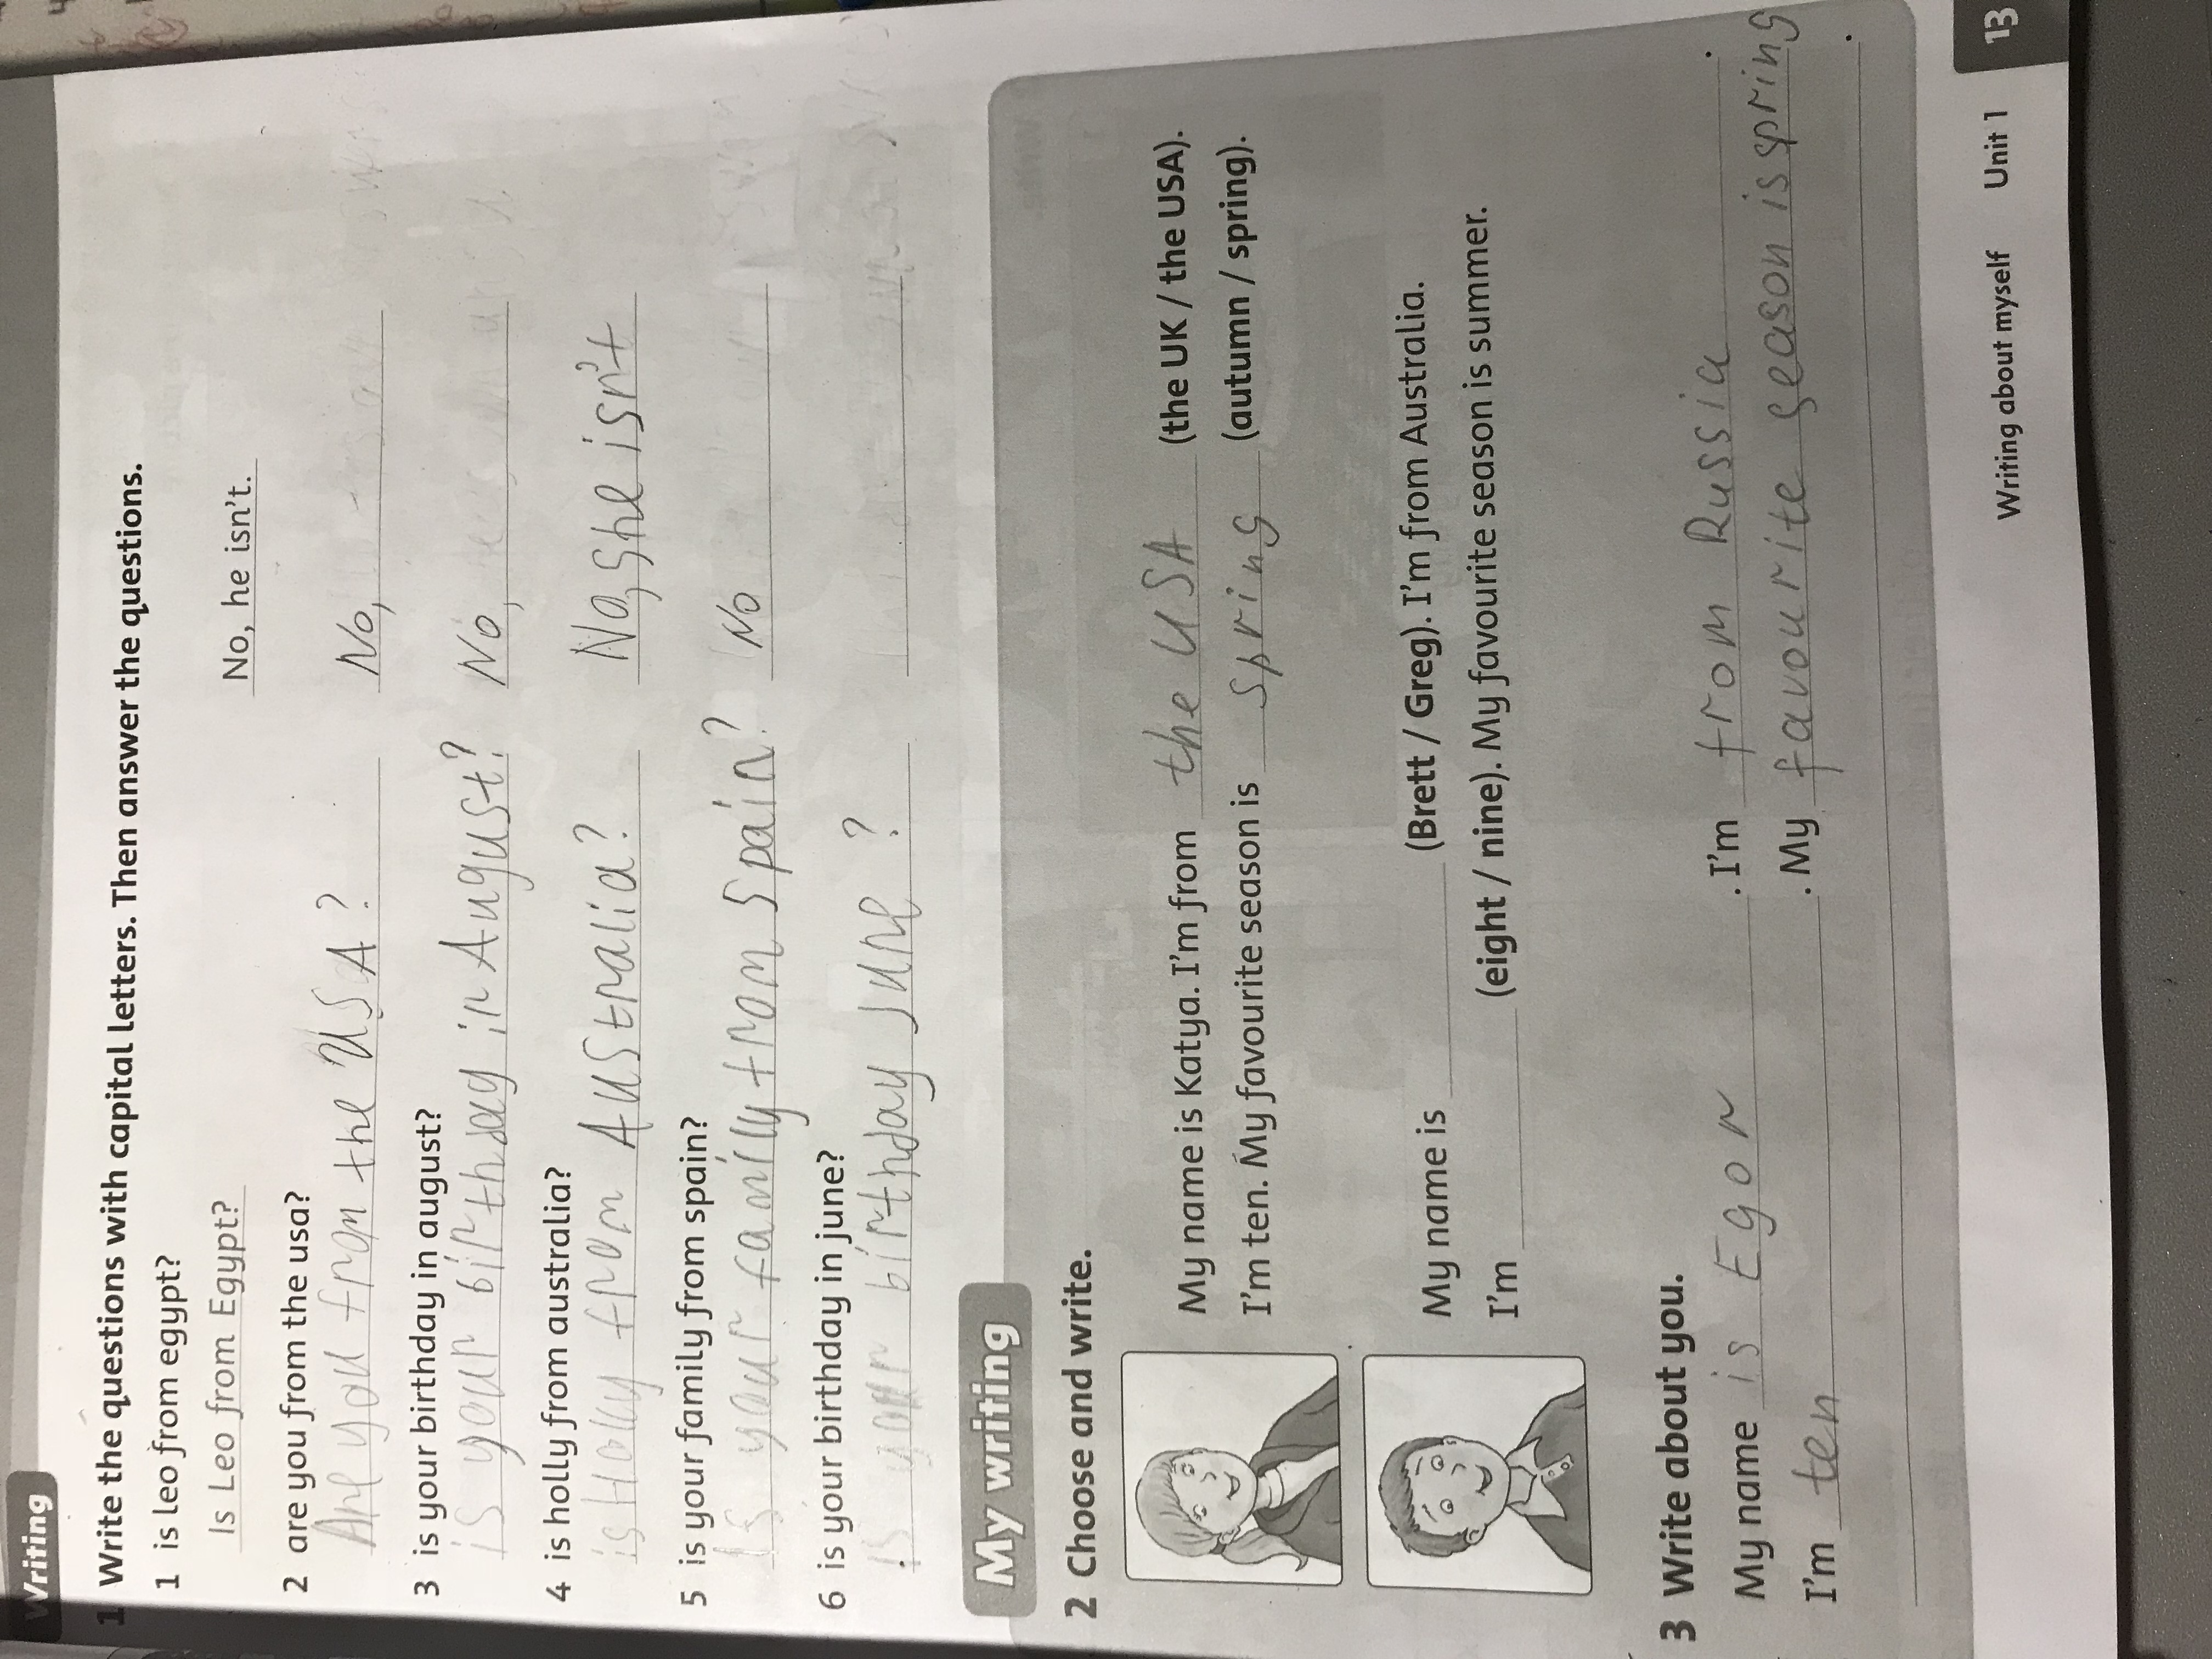 Writing
1 Write the questions with capital letters. Then answer the questions.
1 is leo from egypt?
Is Leo from Egypt? No, he isn't.
2 are you from the usa?
Are you from the USA? No,
3 is your birthday in august?
is your birthday in August? No,
4 is holly from australia?
is Holly from Australia? No, she isn't
5 is your family from spain?
is your family from Spain? No
6 is your birthday in june?
is your birthday June ?
My writing
2 Choose and write.
My name is Katya. I'm from the USA (the UK / the USA).
I'm ten. My favourite season is spring (autumn / spring).
My name is (Brett / Greg). I'm from Australia.
I'm (eight / nine). My favourite season is summer.
3 Write about you.
My name is Egor . I'm from Russia .
I'm ten . My favourite season is spring .
Writing about myself Unit 1 13